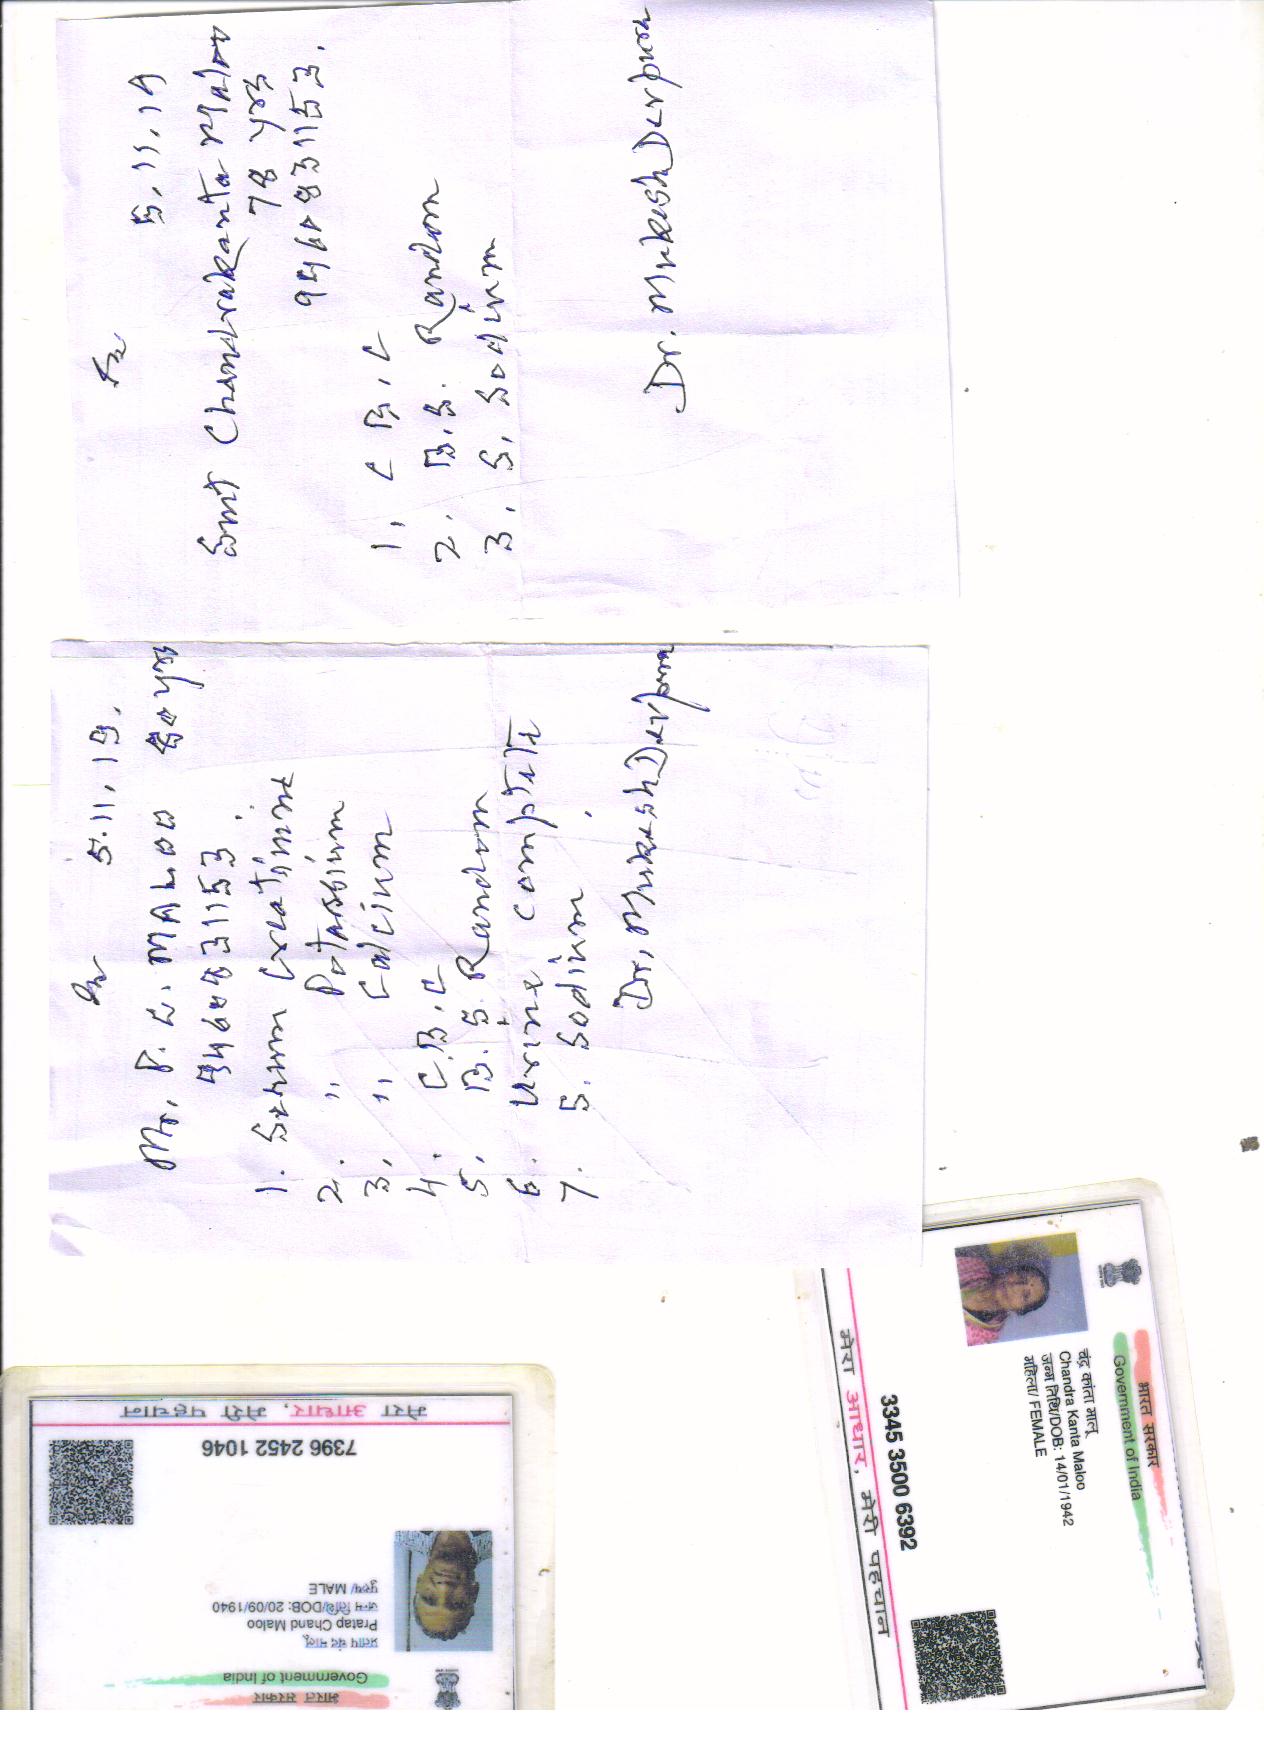 5.11.19
Smt Chandrakanta Maloo
78 yrs
9460831153.
1. C B.C
2. B.S. Random
3. S. Sodium
Dr. Mukesh Derpura
5.11.19.
Mr. P. C. MALOO 80 yrs
9460831153
1. Serum Creatinine
2. " Potassium
3. " Calcium
4. C.B.C
5. B.S. Random
6. Urine Complete
7. S. Sodium
Dr. Mukesh Derpura
भारत सरकार
Government of India
प्रताप चंद मालू
Pratap Chand Maloo
जन्म तिथि/DOB: 20/09/1940
पुरुष/ MALE
7396 2452 1046
मेरा आधार, मेरी पहचान
भारत सरकार
Government of India
चंद्र कांता मालू
Chandra Kanta Maloo
जन्म तिथि/DOB: 14/01/1942
महिला/ FEMALE
3345 3500 6392
मेरा आधार, मेरी पहचान